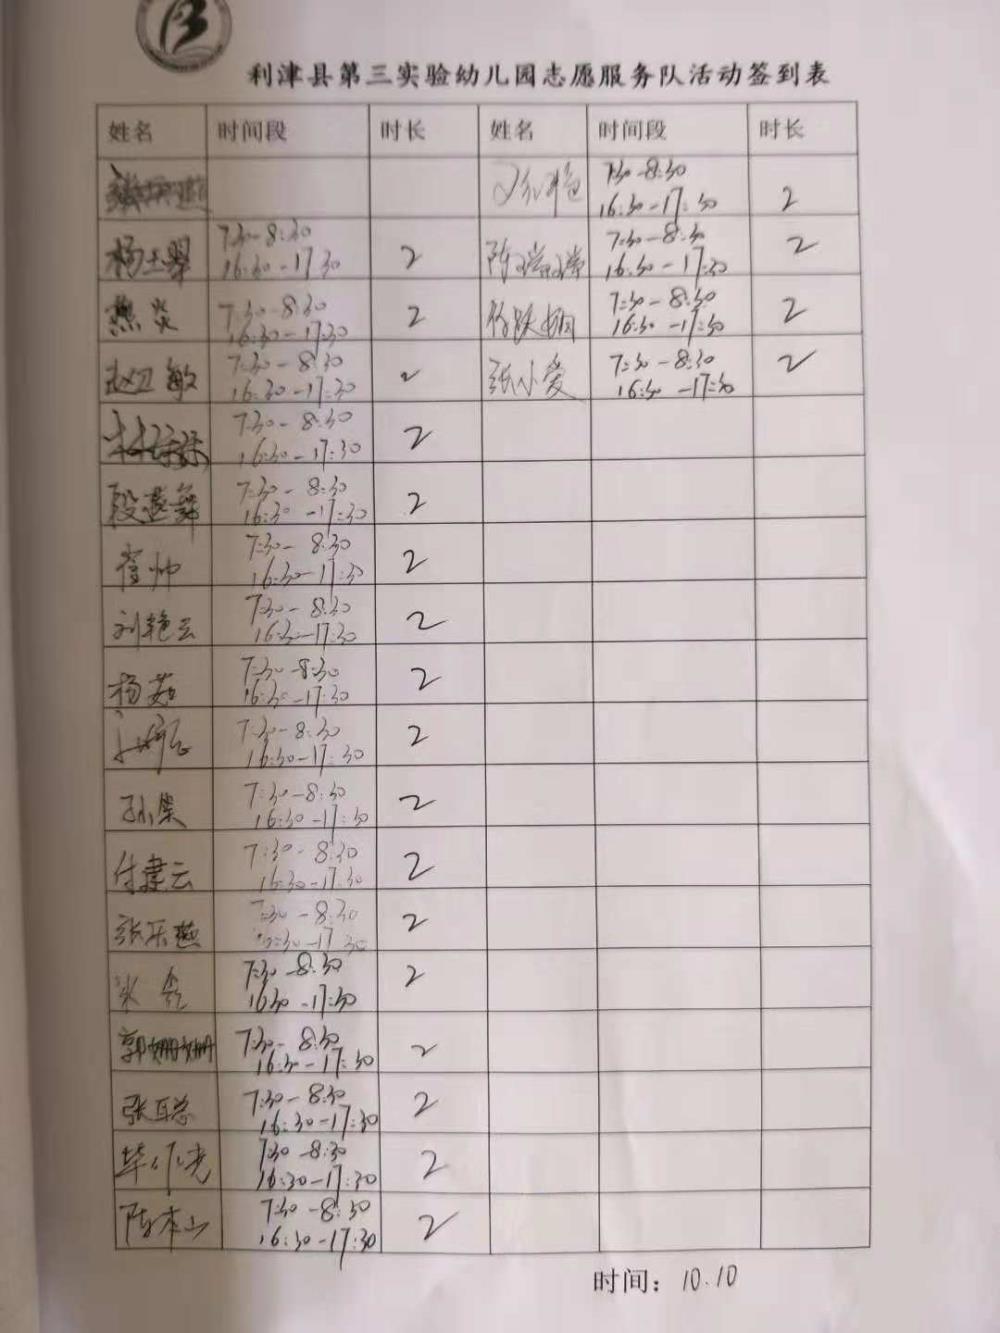 利津县第三实验幼儿园志愿服务队活动签到表
姓名 时间段 时长 姓名 时间段 时长
7:30-8:30
16:30-17:30 2
杨玉翠 7:30-8:30
16:30-17:30 2
陈瑞瑞 7:30-8:30
16:30-17:30 2
燕炎 7:30-8:30
16:30-17:30 2
徐跃娟 7:30-8:30
16:30-17:30 2
赵卫敏 7:30-8:30
16:30-17:30 2
张小爱 7:30-8:30
16:30-17:30 2
7:30-8:30
16:30-17:30 2
段莲舞 7:30-8:30
16:30-17:30 2
崔帅 7:30-8:30
16:30-17:30 2
刘艳云 7:30-8:30
16:30-17:30 2
杨茹 7:30-8:30
16:30-17:30 2
7:30-8:30
16:30-17:30 2
孙集 7:30-8:30
16:30-17:30 2
付建云 7:30-8:30
16:30-17:30 2
张乐燕 7:30-8:30
16:30-17:30 2
7:30-8:30
16:30-17:30 2
郭姗姗 7:30-8:30
16:30-17:30 2
张聪 7:30-8:30
16:30-17:30 2
7:30-8:30
16:30-17:30 2
陈本山 7:30-8:30
16:30-17:30 2
时间：10.10